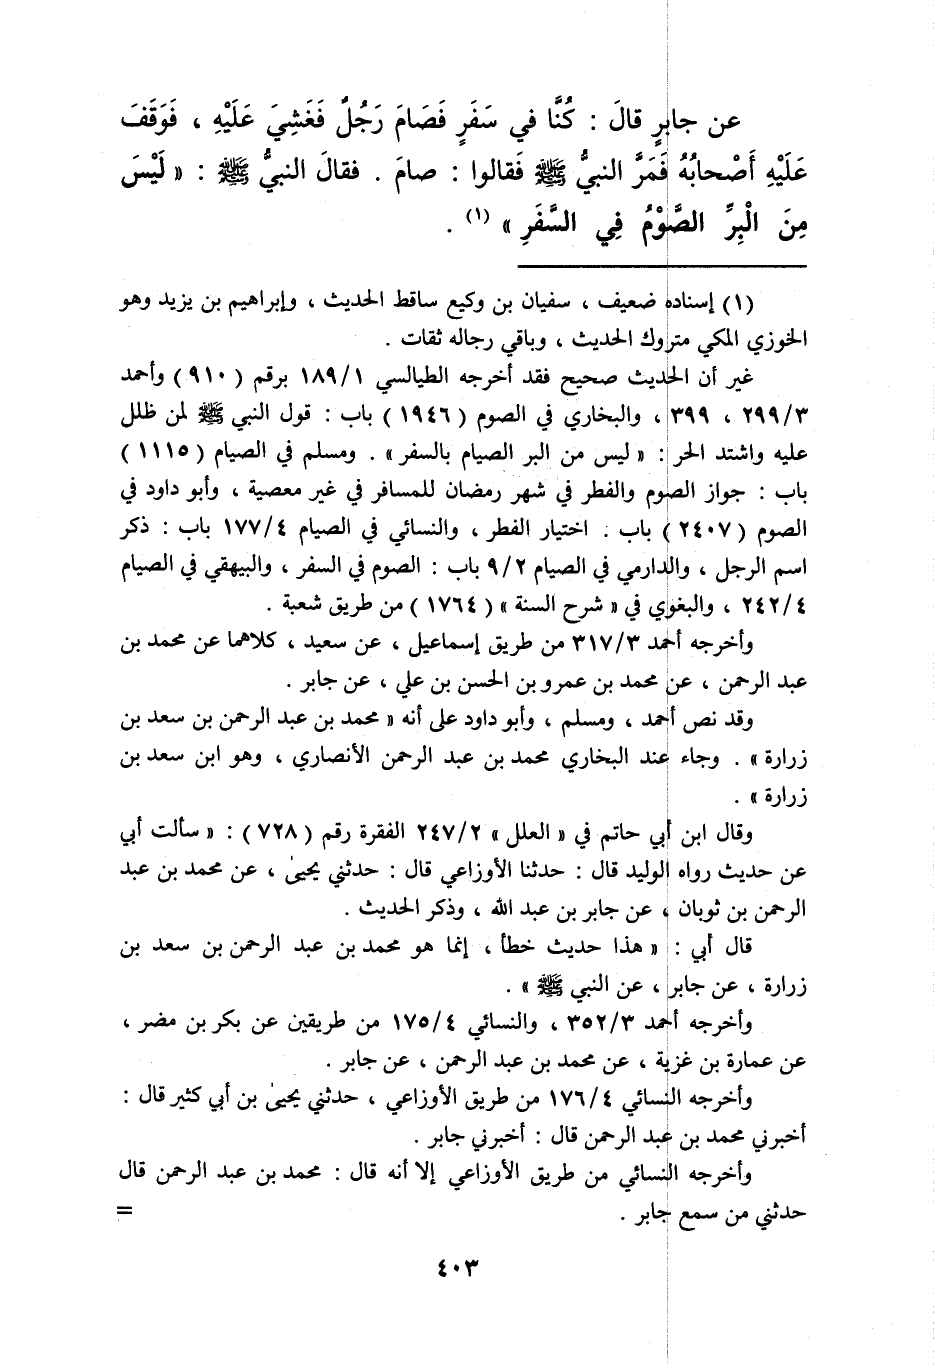 عن جابرٍ قالَ : كُنَّا في سَفَرٍ فَصَامَ رَجُلٌ فَغَشِيَ عَلَيْهِ ، فَوَقَفَ
عَلَيْهِ أَصْحابُهُ فَمَرَّ النبيُّ ﷺ فَقالوا : صامَ . فقالَ النبيُّ ﷺ : « لَيْسَ
مِنَ الْبِرِّ الصَّوْمُ فِي السَّفَرِ » (١) .
(١) إسناده ضعيف ، سفيان بن وكيع ساقط الحديث ، وإبراهيم بن يزيد وهو
الخوزي المكي متروك الحديث ، وباقي رجاله ثقات .
غير أن الحديث صحيح فقد أخرجه الطيالسي ١٨٩/١ برقم (٩١٠) وأحمد
٢٩٩/٣ ، ٣٩٩ ، والبخاري في الصوم (١٩٤٦) باب : قول النبي ﷺ لمن ظلل
عليه واشتد الحر : « ليس من البر الصيام بالسفر » . ومسلم في الصيام (١١١٥)
باب : جواز الصوم والفطر في شهر رمضان للمسافر في غير معصية ، وأبو داود في
الصوم (٢٤٠٧) باب . اختيار الفطر ، والنسائي في الصيام ١٧٧/٤ باب : ذكر
اسم الرجل ، والدارمي في الصيام ٩/٢ باب : الصوم في السفر ، والبيهقي في الصيام
٢٤٢/٤ ، والبغوي في « شرح السنة » (١٧٦٤) من طريق شعبة .
وأخرجه أحمد ٣١٧/٣ من طريق إسماعيل ، عن سعيد ، كلاهما عن محمد بن
عبد الرحمن ، عن محمد بن عمرو بن الحسن بن علي ، عن جابر .
وقد نص أحمد ، ومسلم ، وأبو داود على أنه « محمد بن عبد الرحمن بن سعد بن
زرارة » . وجاء عند البخاري محمد بن عبد الرحمن الأنصاري ، وهو ابن سعد بن
زرارة » .
وقال ابن أبي حاتم في « العلل » ٢٤٧/٢ الفقرة رقم (٧٢٨) : « سألت أبي
عن حديث رواه الوليد قال : حدثنا الأوزاعي قال : حدثني يحيىٰ ، عن محمد بن عبد
الرحمن بن ثوبان ، عن جابر بن عبد الله ، وذكر الحديث .
قال أبي : « هذا حديث خطأ ، إنما هو محمد بن عبد الرحمن بن سعد بن
زرارة ، عن جابر ، عن النبي ﷺ » .
وأخرجه أحمد ٣٥٢/٣ ، والنسائي ١٧٥/٤ من طريقين عن بكر بن مضر ،
عن عمارة بن غزية ، عن محمد بن عبد الرحمن ، عن جابر .
وأخرجه النسائي ١٧٦/٤ من طريق الأوزاعي ، حدثني يحيىٰ بن أبي كثير قال :
أخبرني محمد بن عبد الرحمن قال : أخبرني جابر .
وأخرجه النسائي من طريق الأوزاعي إلا أنه قال : محمد بن عبد الرحمن قال
حدثني من سمع جابر . =
٤٠٣